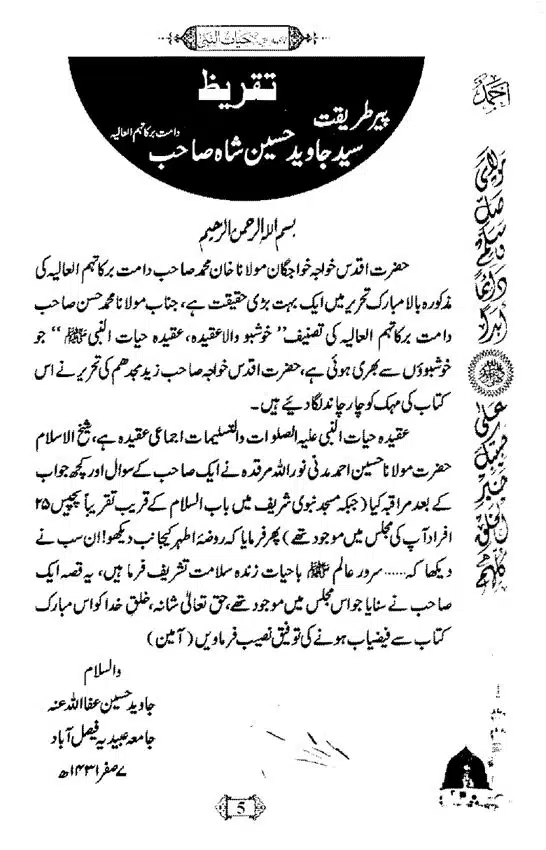 حیات النبی
تقریظ
پیر طریقت
سید جاوید حسین شاہ صاحب دامت برکاتہم العالیہ
بسم اللہ الرحمن الرحیم
حضرت اقدس خواجہ خواجگان مولانا خان محمد صاحب دامت برکاتہم العالیہ کی
مذکورہ بالا مبارک تحریر میں ایک بہت بڑی حقیقت ہے، جناب مولانا محمد حسن صاحب
دامت برکاتہم العالیہ کی تصنیف "خوشبو والا عقیدہ، عقیدہ حیات النبی ﷺ" جو
خوشبوؤں سے بھری ہوئی ہے، حضرت اقدس خواجہ صاحب زید مجدھم کی تحریر نے اس
کتاب کی مہک کو چار چاند لگا دیئے ہیں۔
عقیدہ حیات النبی علیہ الصلوات والتسلیمات اجماعی عقیدہ ہے، شیخ الاسلام
حضرت مولانا حسین احمد مدنی نور اللہ مرقدہ نے ایک صاحب کے سوال اور کچھ جواب
کے بعد مراقبہ کیا (جبکہ مسجد نبوی شریف میں باب السلام کے قریب تقریباً پچیس ۲۵
افراد آپ کی مجلس میں موجود تھے) پھر فرمایا کہ روضۂ اطہر کیجانب دیکھو! ان سب نے
دیکھا کہ...... سرور عالم ﷺ باحیات زندہ سلامت تشریف فرما ہیں، یہ قصہ ایک
صاحب نے سنایا جو اس مجلس میں موجود تھے، حق تعالیٰ شانہ، خلقِ خدا کو اس مبارک
کتاب سے فیضیاب ہونے کی توفیق نصیب فرماویں (آمین)
والسلام
جاوید حسین عفا اللہ عنہ
جامعہ عبیدیہ فیصل آباد
۷ صفر ۱۴۳۱ھ
مولای صل وسلم دائما ابدا
علی حبیبک خیر الخلق کلھم
5